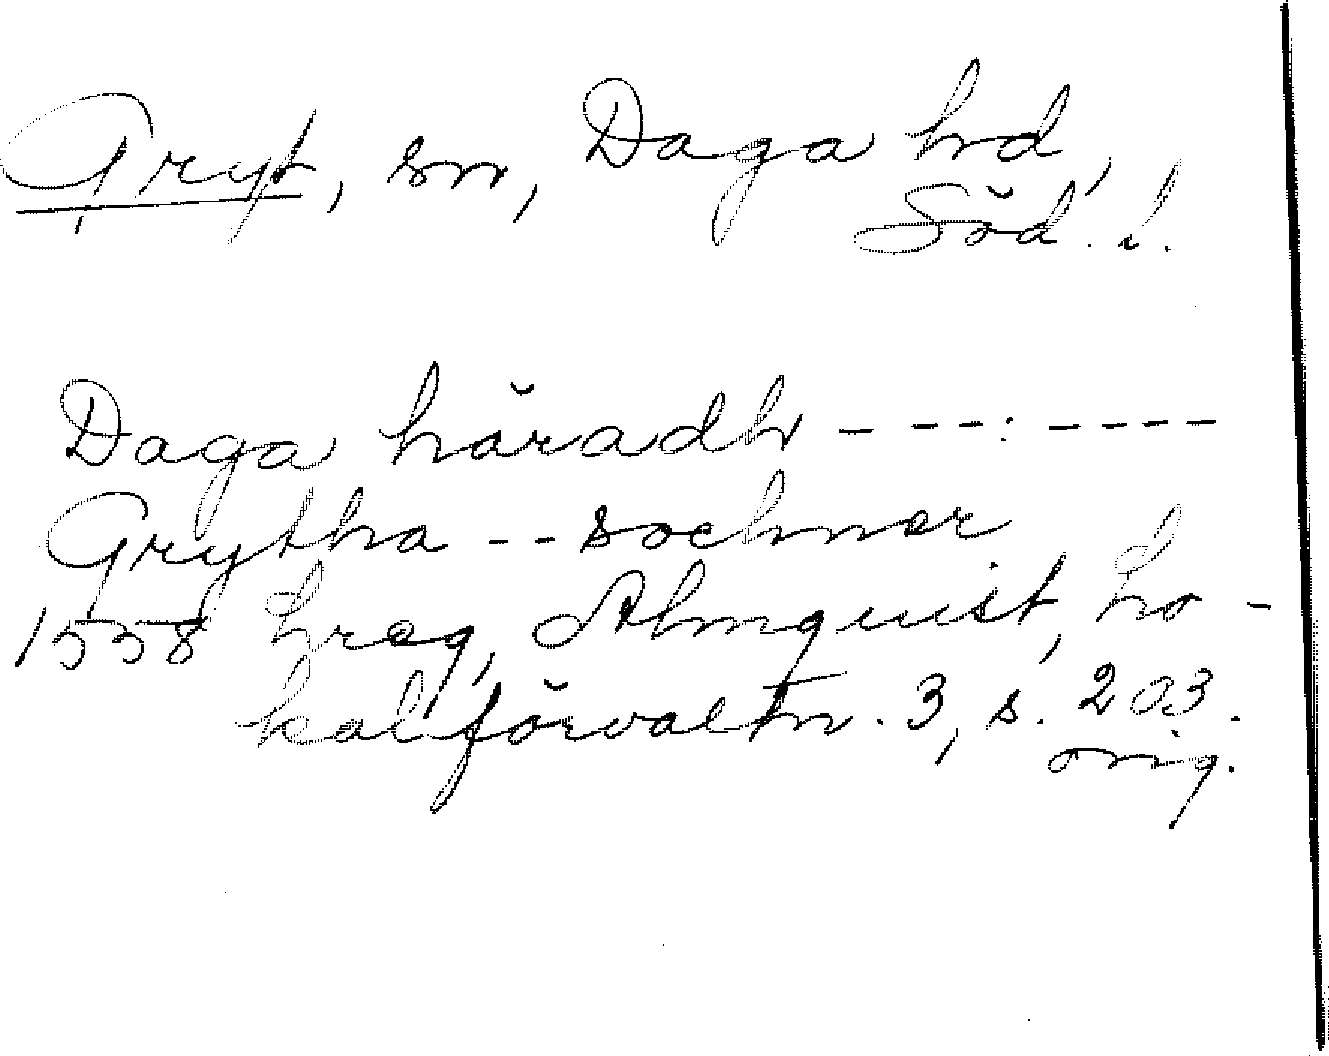 Gryt, sn, Daga hd,
Söd. l.
Daga häradh - - - - : - - - -
Grytha - - sochner
1558 hreg, Almquist, Lo-
kalförvaltn. 3, s. 203.
orig.